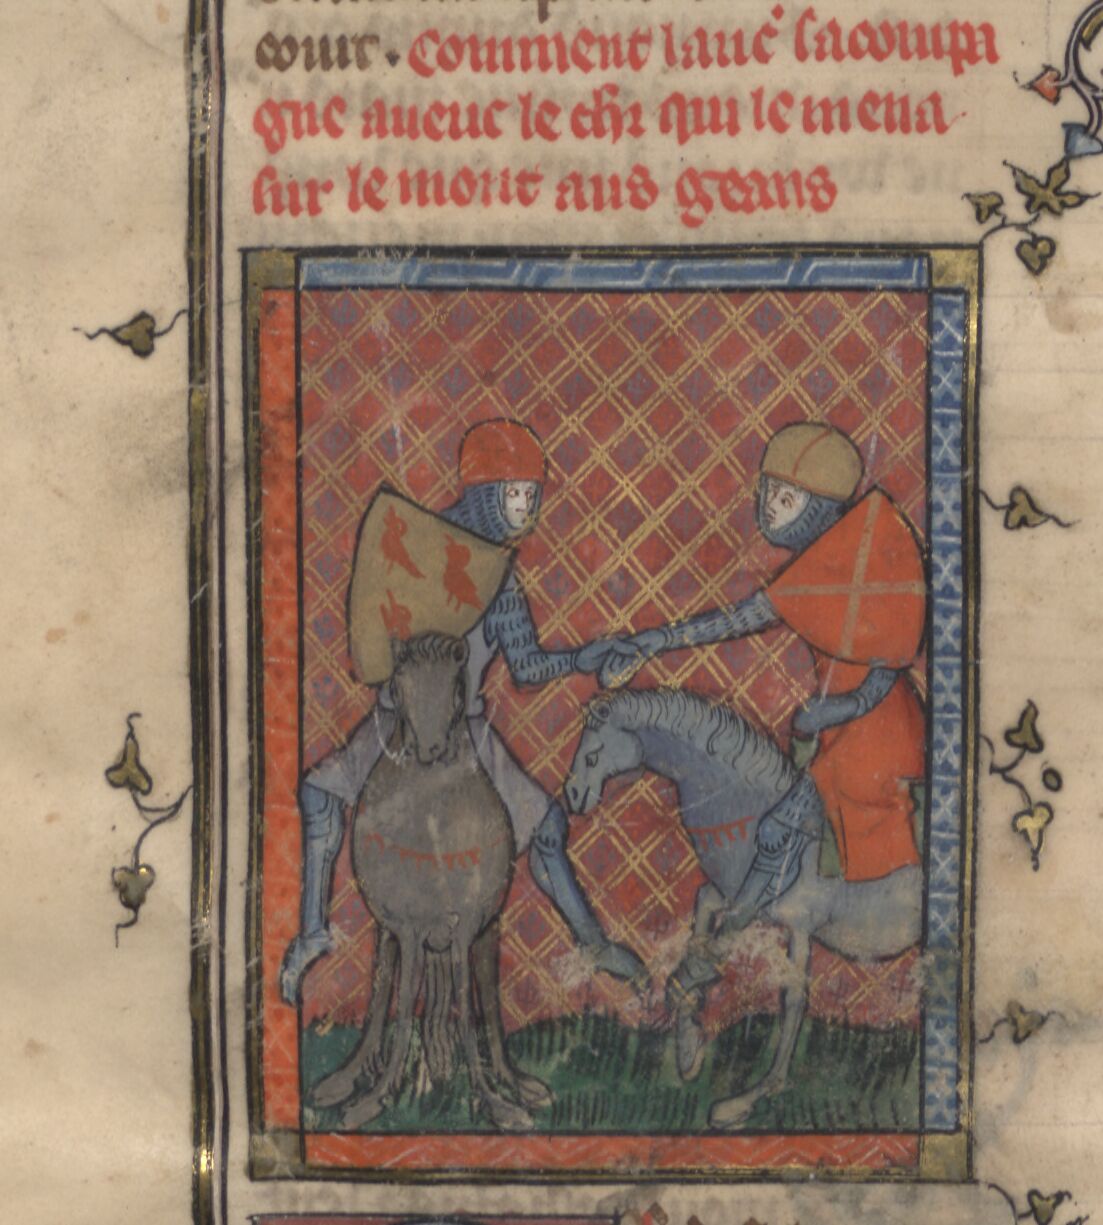 court. Comment lanc̉ sacompai
gne aueuc le chr̄ qui le mena
sur le mont aus geans